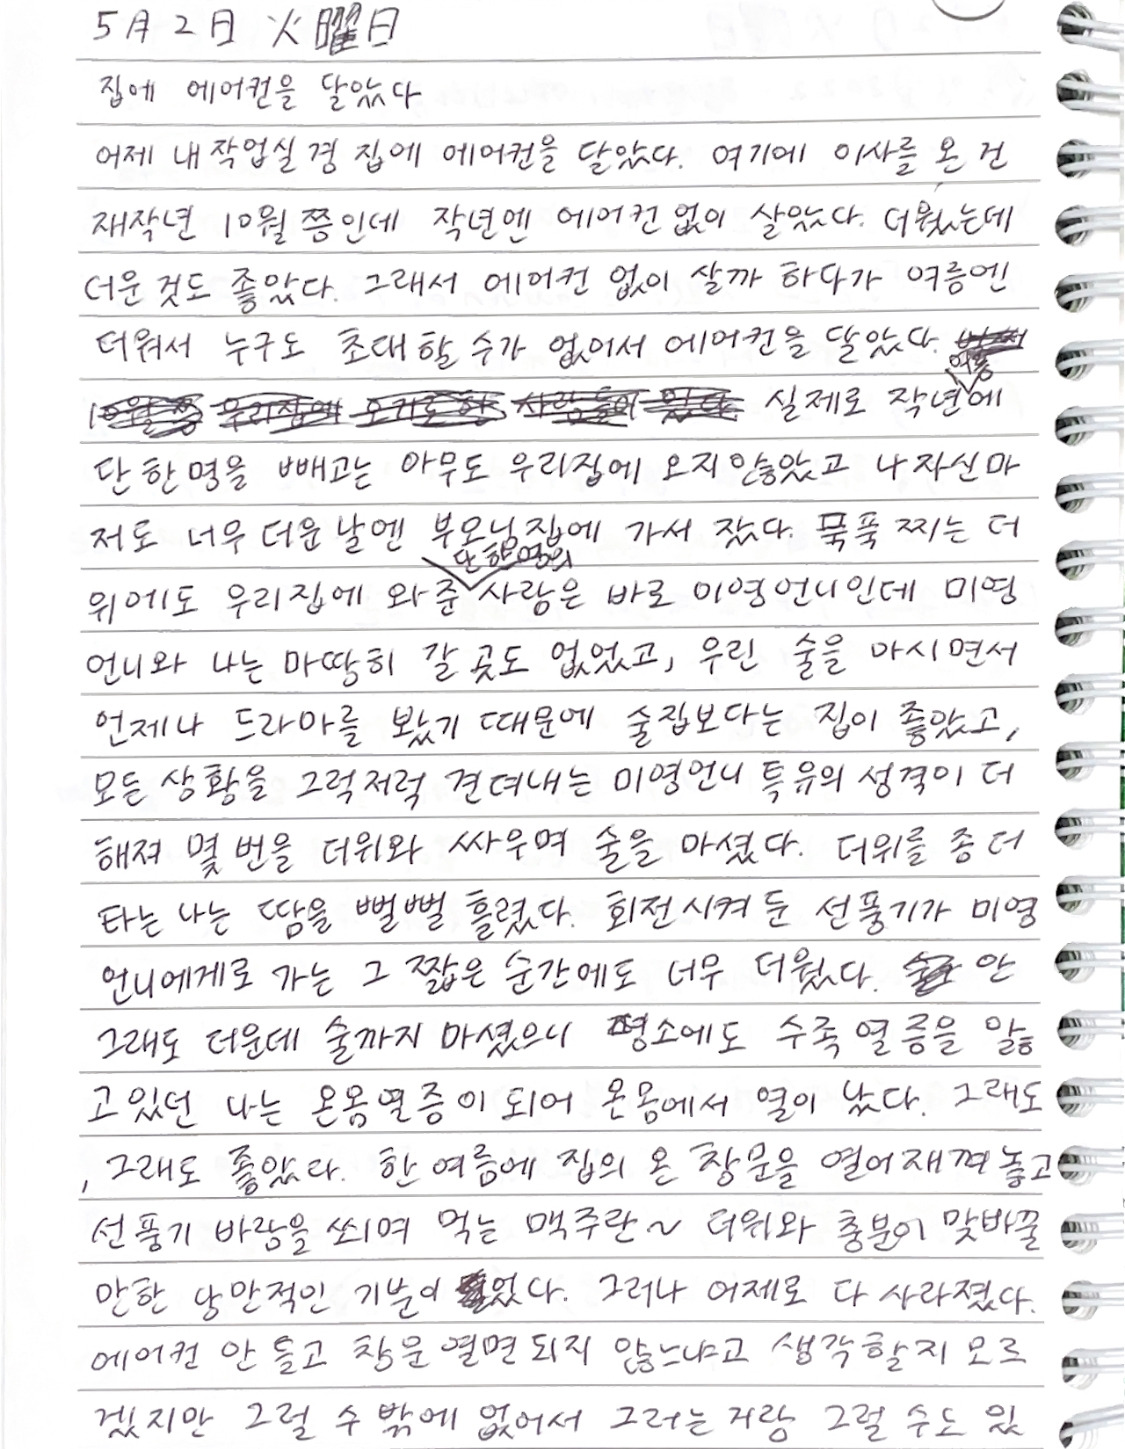 5月2日 火曜日
집에 에어컨을 달았다
어제 내 작업실 겸 집에 에어컨을 달았다. 여기에 이사를 온 건
재작년 10월 쯤인데 작년엔 에어컨 없이 살았다. 더웠는데
더운 것도 좋았다. 그래서 에어컨 없이 살까 하다가 여름엔
더워서 누구도 초대할 수가 없어서 에어컨을 달았다.
10월 쯤 우리집에 오기로 한 사람들이 있다. 실제로 작년 여름에
단 한 명을 빼고는 아무도 우리집에 오지 않았고 나 자신마
저도 너무 더운 날엔 부모님집에 가서 잤다. 푹푹 찌는 더
위에도 우리집에 와준 단 한 명의 사람은 바로 미영언니인데 미영
언니와 나는 마땅히 갈 곳도 없었고, 우린 술을 마시면서
언제나 드라마를 봤기 때문에 술집보다는 집이 좋았고,
모든 상황을 그럭저럭 견뎌내는 미영언니 특유의 성격이 더
해져 몇 번을 더위와 싸우며 술을 마셨다. 더위를 좀 더
타는 나는 땀을 뻘뻘 흘렸다. 회전시켜 둔 선풍기가 미영
언니에게로 가는 그 짧은 순간에도 너무 더웠다. 안
그래도 더운데 술까지 마셨으니 평소에도 수족열증을 앓
고 있던 나는 온몸열증이 되어 온몸에서 열이 났다. 그래도
, 그래도 좋았다. 한 여름에 집의 온 창문을 열어재껴 놓고
선풍기 바람을 쐬며 먹는 맥주란~ 더위와 충분이 맞바꿀
만한 낭만적인 기분이었다. 그러나 어제로 다 사라졌다.
에어컨 안 틀고 창문 열면 되지 않느냐고 생각할지 모르
겠지만 그럴 수 밖에 없어서 그러는 거랑 그럴 수도 있